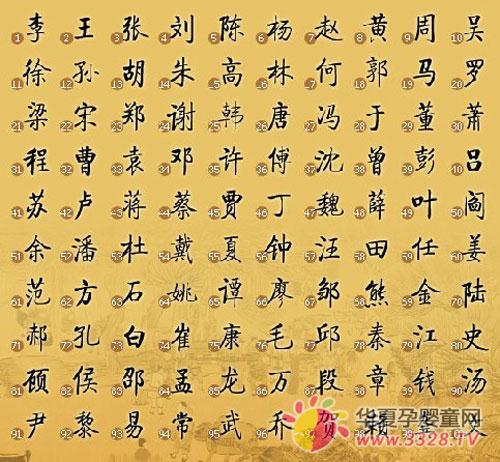 1 李 2 王 3 张 4 刘 5 陈 6 杨 7 赵 8 黄 9 周 10 吴
11 徐 12 孙 13 胡 14 朱 15 高 16 林 17 何 18 郭 19 马 20 罗
21 梁 22 宋 23 郑 24 谢 25 韩 26 唐 27 冯 28 于 29 董 30 萧
31 程 32 曹 33 袁 34 邓 35 许 36 傅 37 沈 38 曾 39 彭 40 吕
41 苏 42 卢 43 蒋 44 蔡 45 贾 46 丁 47 魏 48 薛 49 叶 50 阎
51 余 52 潘 53 杜 54 戴 55 夏 56 钟 57 汪 58 田 59 任 60 姜
61 范 62 方 63 石 64 姚 65 谭 66 廖 67 邹 68 熊 69 金 70 陆
71 郝 72 孔 73 白 74 崔 75 康 76 毛 77 邱 78 秦 79 江 80 史
81 顾 82 侯 83 邵 84 孟 85 龙 86 万 87 段 88 章 89 钱 90 汤
91 尹 92 黎 93 易 94 常 95 武 96 乔 贺 赖
华夏孕婴童网
www.3328.TV